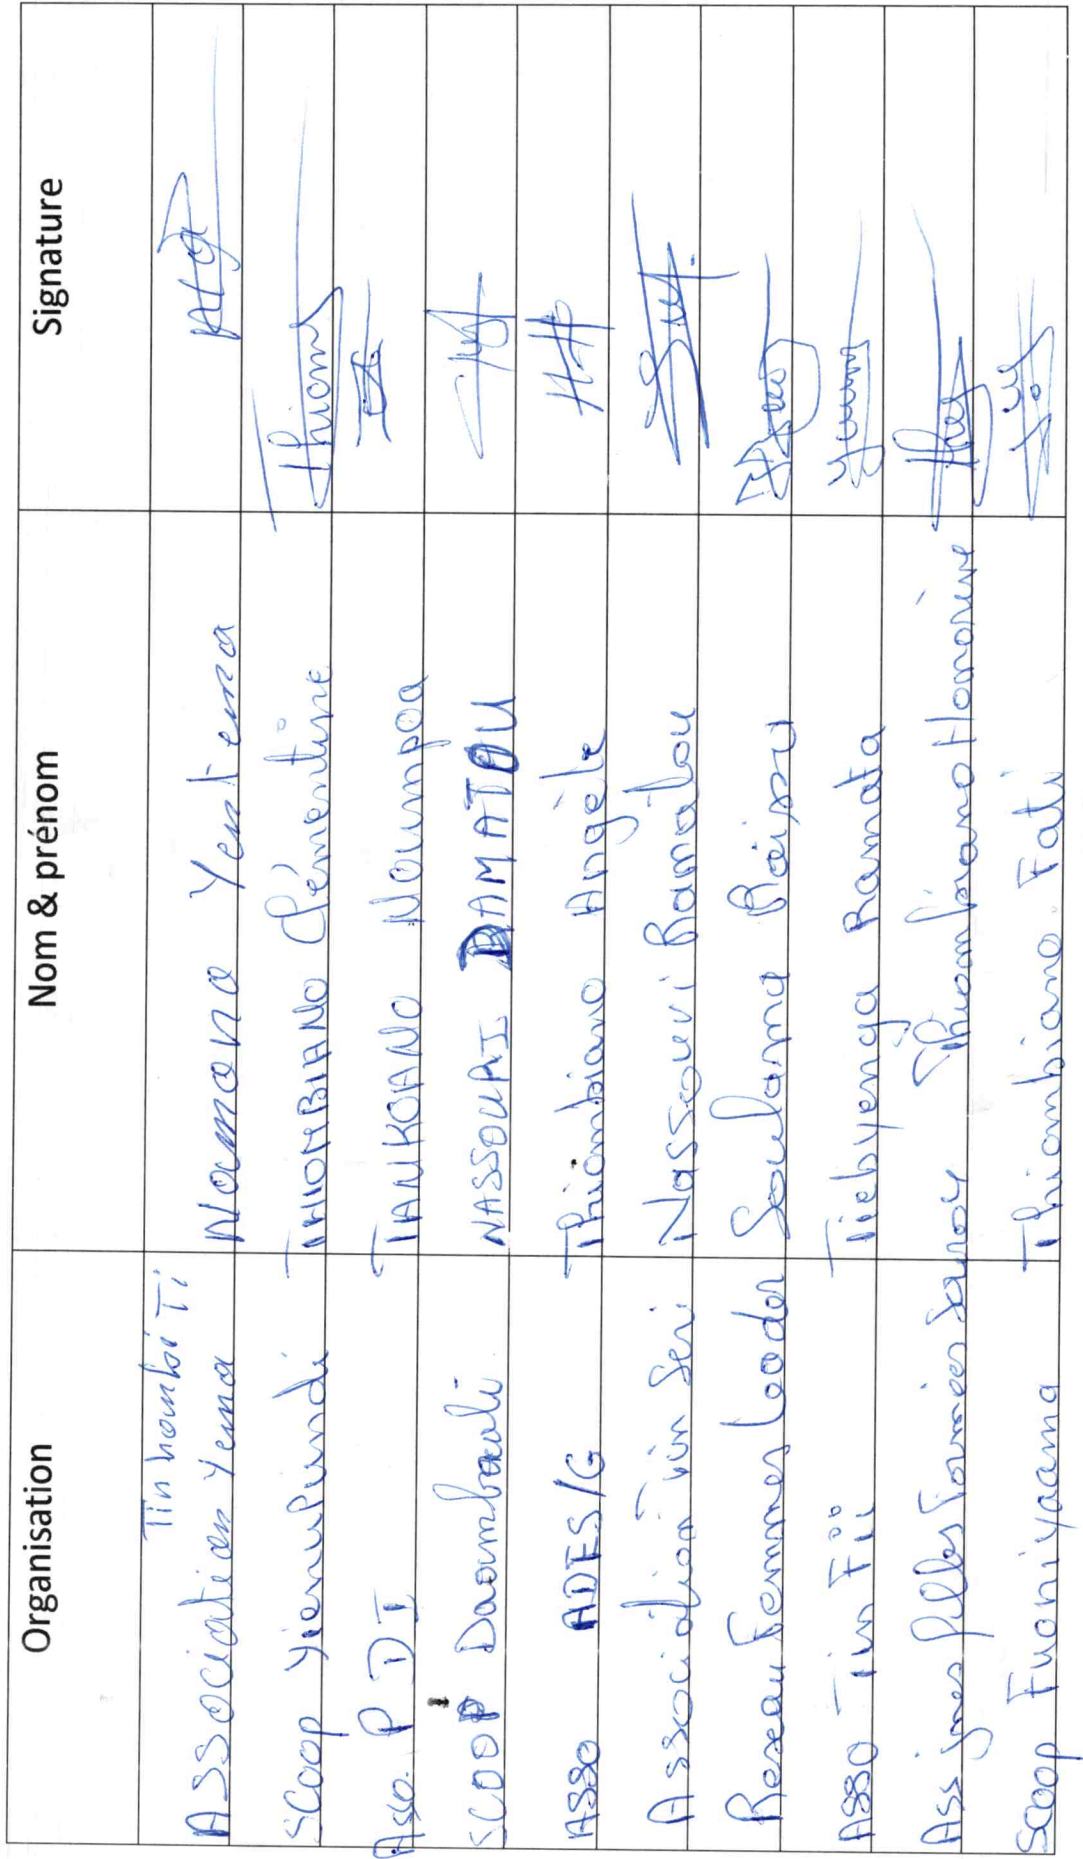 Organisation Nom & prénom Signature
Tin hanbi Ti
Association Yema Namono Yentema
SCoop Yienupundi THIOMBIANO Clémentine Thiom
Asso. P DI TANKOANO Noumpoa
SCOOP Daambaali NASSOURI RAMATOU
ASSO ADES/G Thiombiano Angèle
Association Tin Seri Nassouri Ramatou
Reseau Femmes Leader Soulama Raïssa
ASSO Tin Fii Tiebyenga Ramata
Ass jnes filles Thiombiano Honorine
Scoop Fuoniyaama Thiombiano Fati